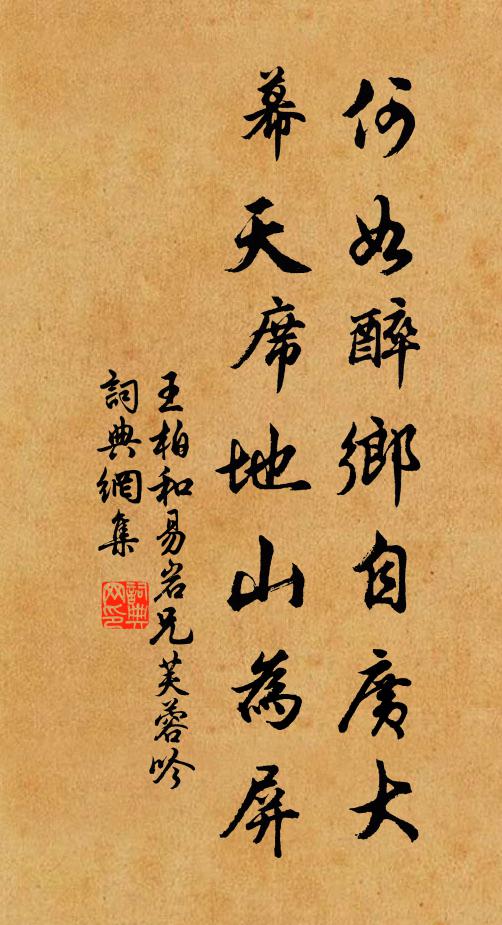 何如醉鄉自廣大
幕天席地山為屏
王柏和易岩兄芙蓉吟
詞典網集
詞典网印